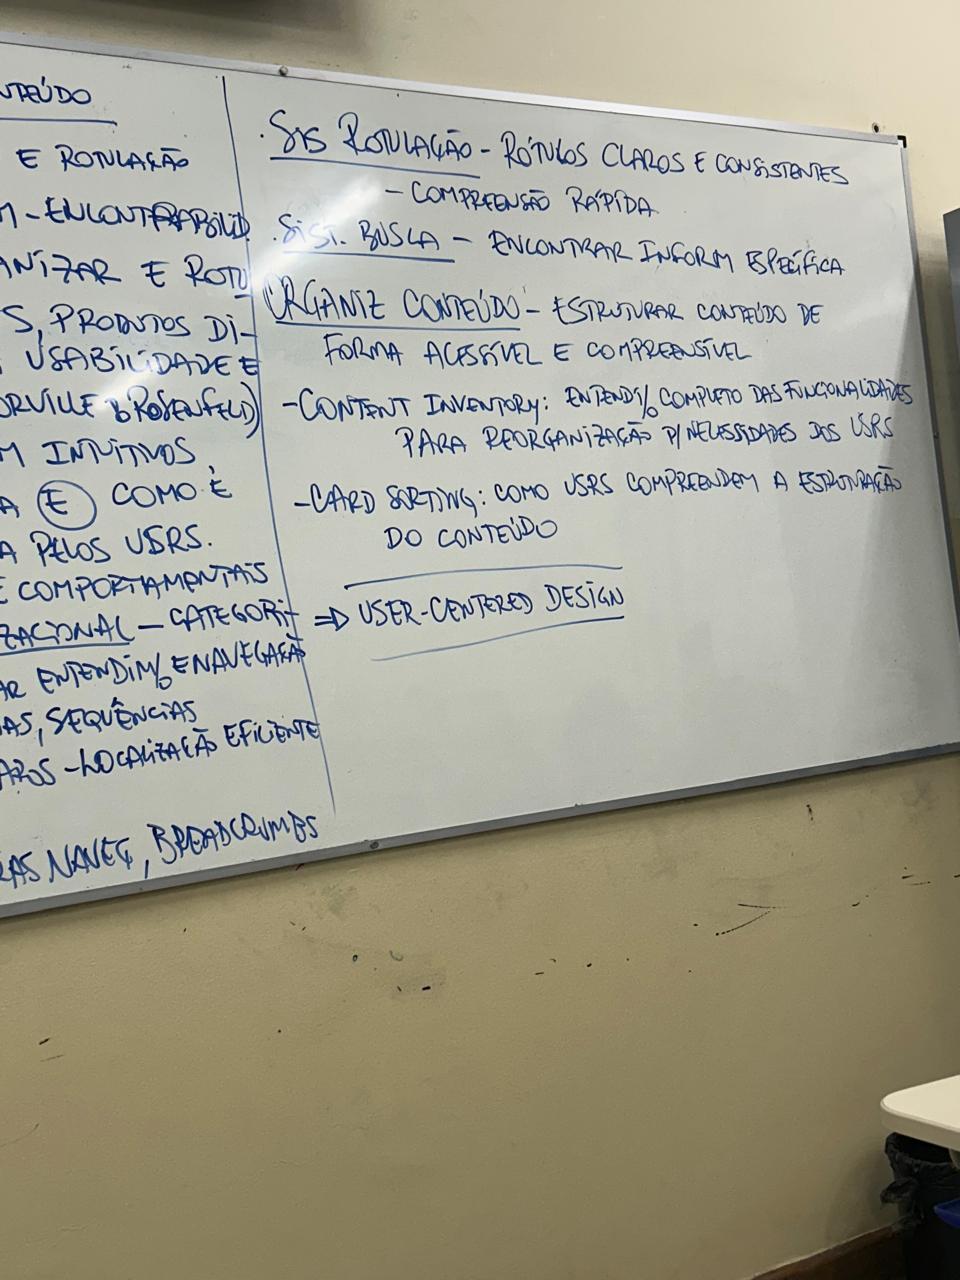 NTEÚDO
E ROTULAÇÃO
M - ENCONTRABILID
ANIZAR E ROTU
S, PRODUTOS DI-
USABILIDADE E
ORVILLE & ROSENFELD)
M INTUITIVOS
A E COMO É
A PELOS USRS.
E COMPORTAMENTAIS
ZACIONAL - CATEGORI
AR ENTENDIM/o E NAVEGAÇÃO
AS, SEQUÊNCIAS
AROS - LOCALIZAÇÃO EFICIENTE
RAS NAVEG, BREADCRUMBS
. SIS ROTULAÇÃO - RÓTULOS CLAROS E CONSISTENTES
- COMPREENSÃO RÁPIDA
. SIST. BUSCA - ENCONTRAR INFORM ESPECÍFICA
ORGANIZ CONTEÚDO - ESTRUTURAR CONTEÚDO DE
FORMA ACESSÍVEL E COMPREENSÍVEL
- CONTENT INVENTORY: ENTENDI/o COMPLETO DAS FUNCIONALIDADES
PARA REORGANIZAÇÃO P/ NECESSIDADES DOS USRS
- CARD SORTING: COMO USRS COMPREENDEM A ESTRUTURAÇÃO
DO CONTEÚDO
=> USER-CENTERED DESIGN